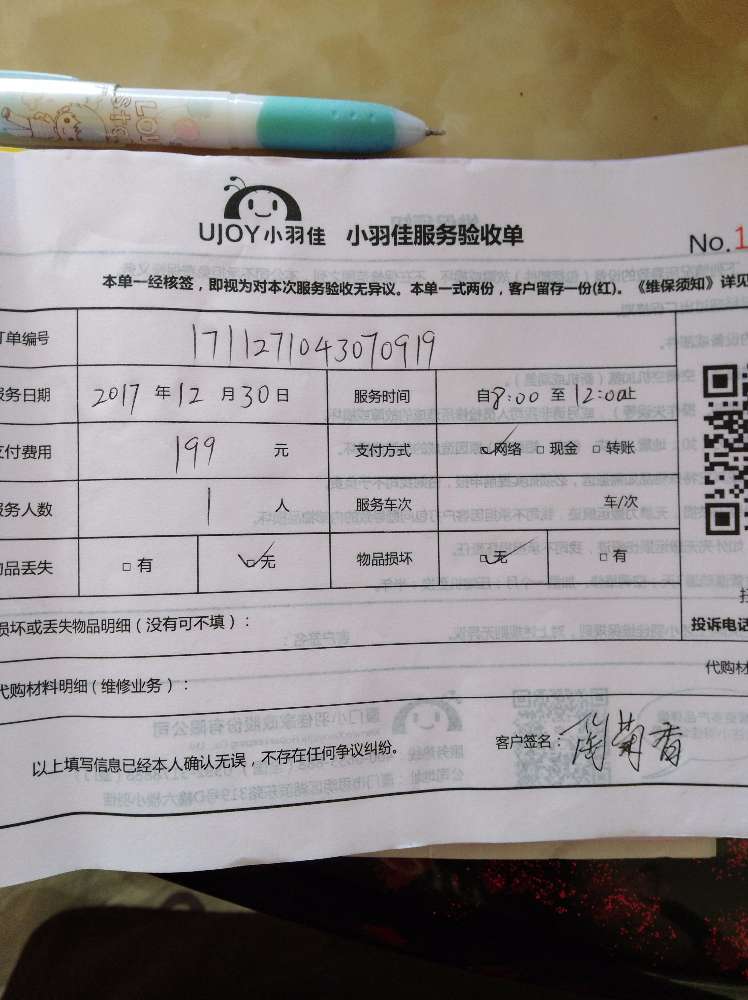 UJOY小羽佳 小羽佳服务验收单
No.1
本单一经核签，即视为对本次服务验收无异议。本单一式两份，客户留存一份(红)。《维保须知》详见
订单编号 1711271043070919
服务日期 2017 年 12 月 30 日 服务时间 自8:00 至 12:00止
支付费用 199 元 支付方式 ☑网络 □现金 □转账
服务人数 1 人 服务车次 车/次
物品丢失 □有 ☑无 物品损坏 ☑无 □有
损坏或丢失物品明细（没有可不填）：
投诉电话
代购材料明细(维修业务)： 代购材
以上填写信息已经本人确认无误，不存在任何争议纠纷。 客户签名：菊香